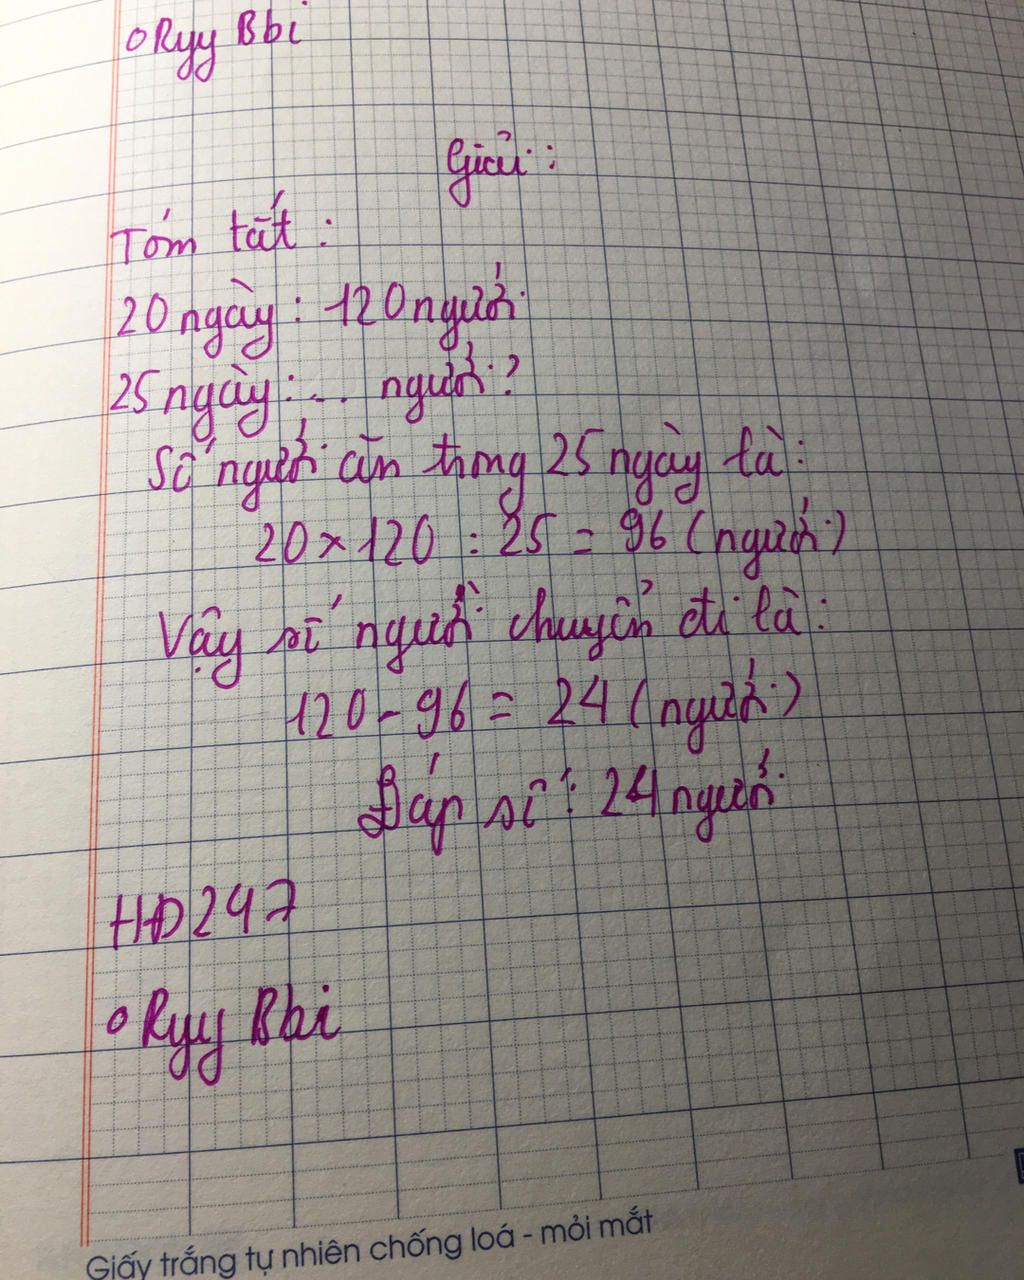 Ryy Bbi
Giải :
Tóm tắt :
20 ngày : 120 người
25 ngày : ... người ?
Số người ăn trong 25 ngày là :
20 × 120 : 25 = 96 (người)
Vậy số người chuyển đi là :
120 - 96 = 24 (người)
Đáp số : 24 người
HĐ247
Ryy Bbi
Giấy trắng tự nhiên chống loá - mỏi mắt